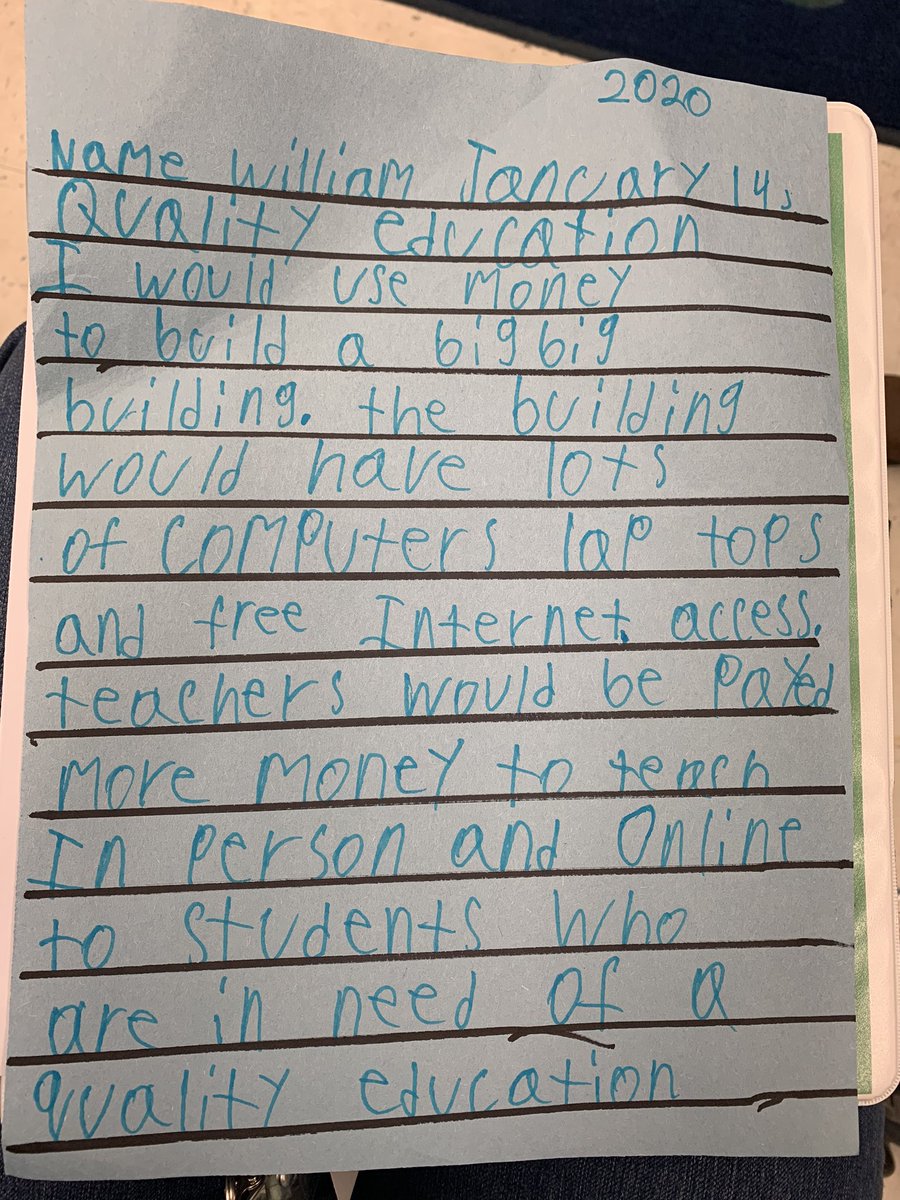 2020
Name William January 14,
Quality education
I would use money
to build a big big
building. the building
would have lots
of computers lap tops
and free Internet. access.
teachers would be Payed
More money to teach
In Person and Online
to students who
are in need of a
quality education